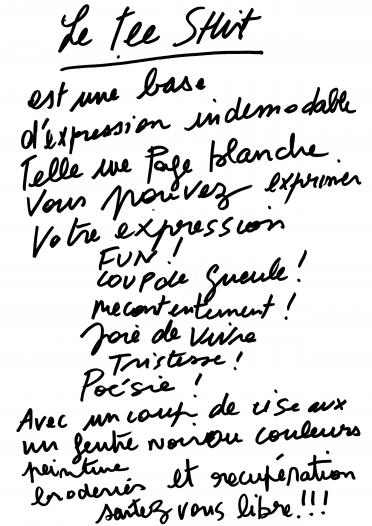 Le Tee Shirt
est une base
d'expression indemodable
Telle une Page blanche.
Vous pouvez exprimer
Votre expression
FUN !
COUP de Gueule !
mecontentement !
Joie de Vivre
Tristesse !
Poésie !
Avec un coup de ciseaux
un feutre noir ou couleurs
peinture
broderies et recupération
sentez vous libre !!!